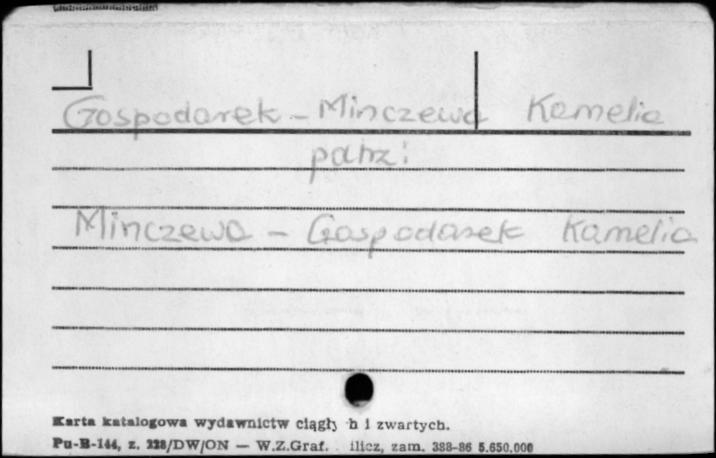 Gospodarek - Minczewa Kamelia
patrz:
Minczewa - Gospodarek Kamelia
Karta katalogowa wydawnictw ciągły h i zwartych.
Pu-B-144, z. 228/DW/ON — W.Z.Graf. ilicz, zam. 388-86 5.650.000